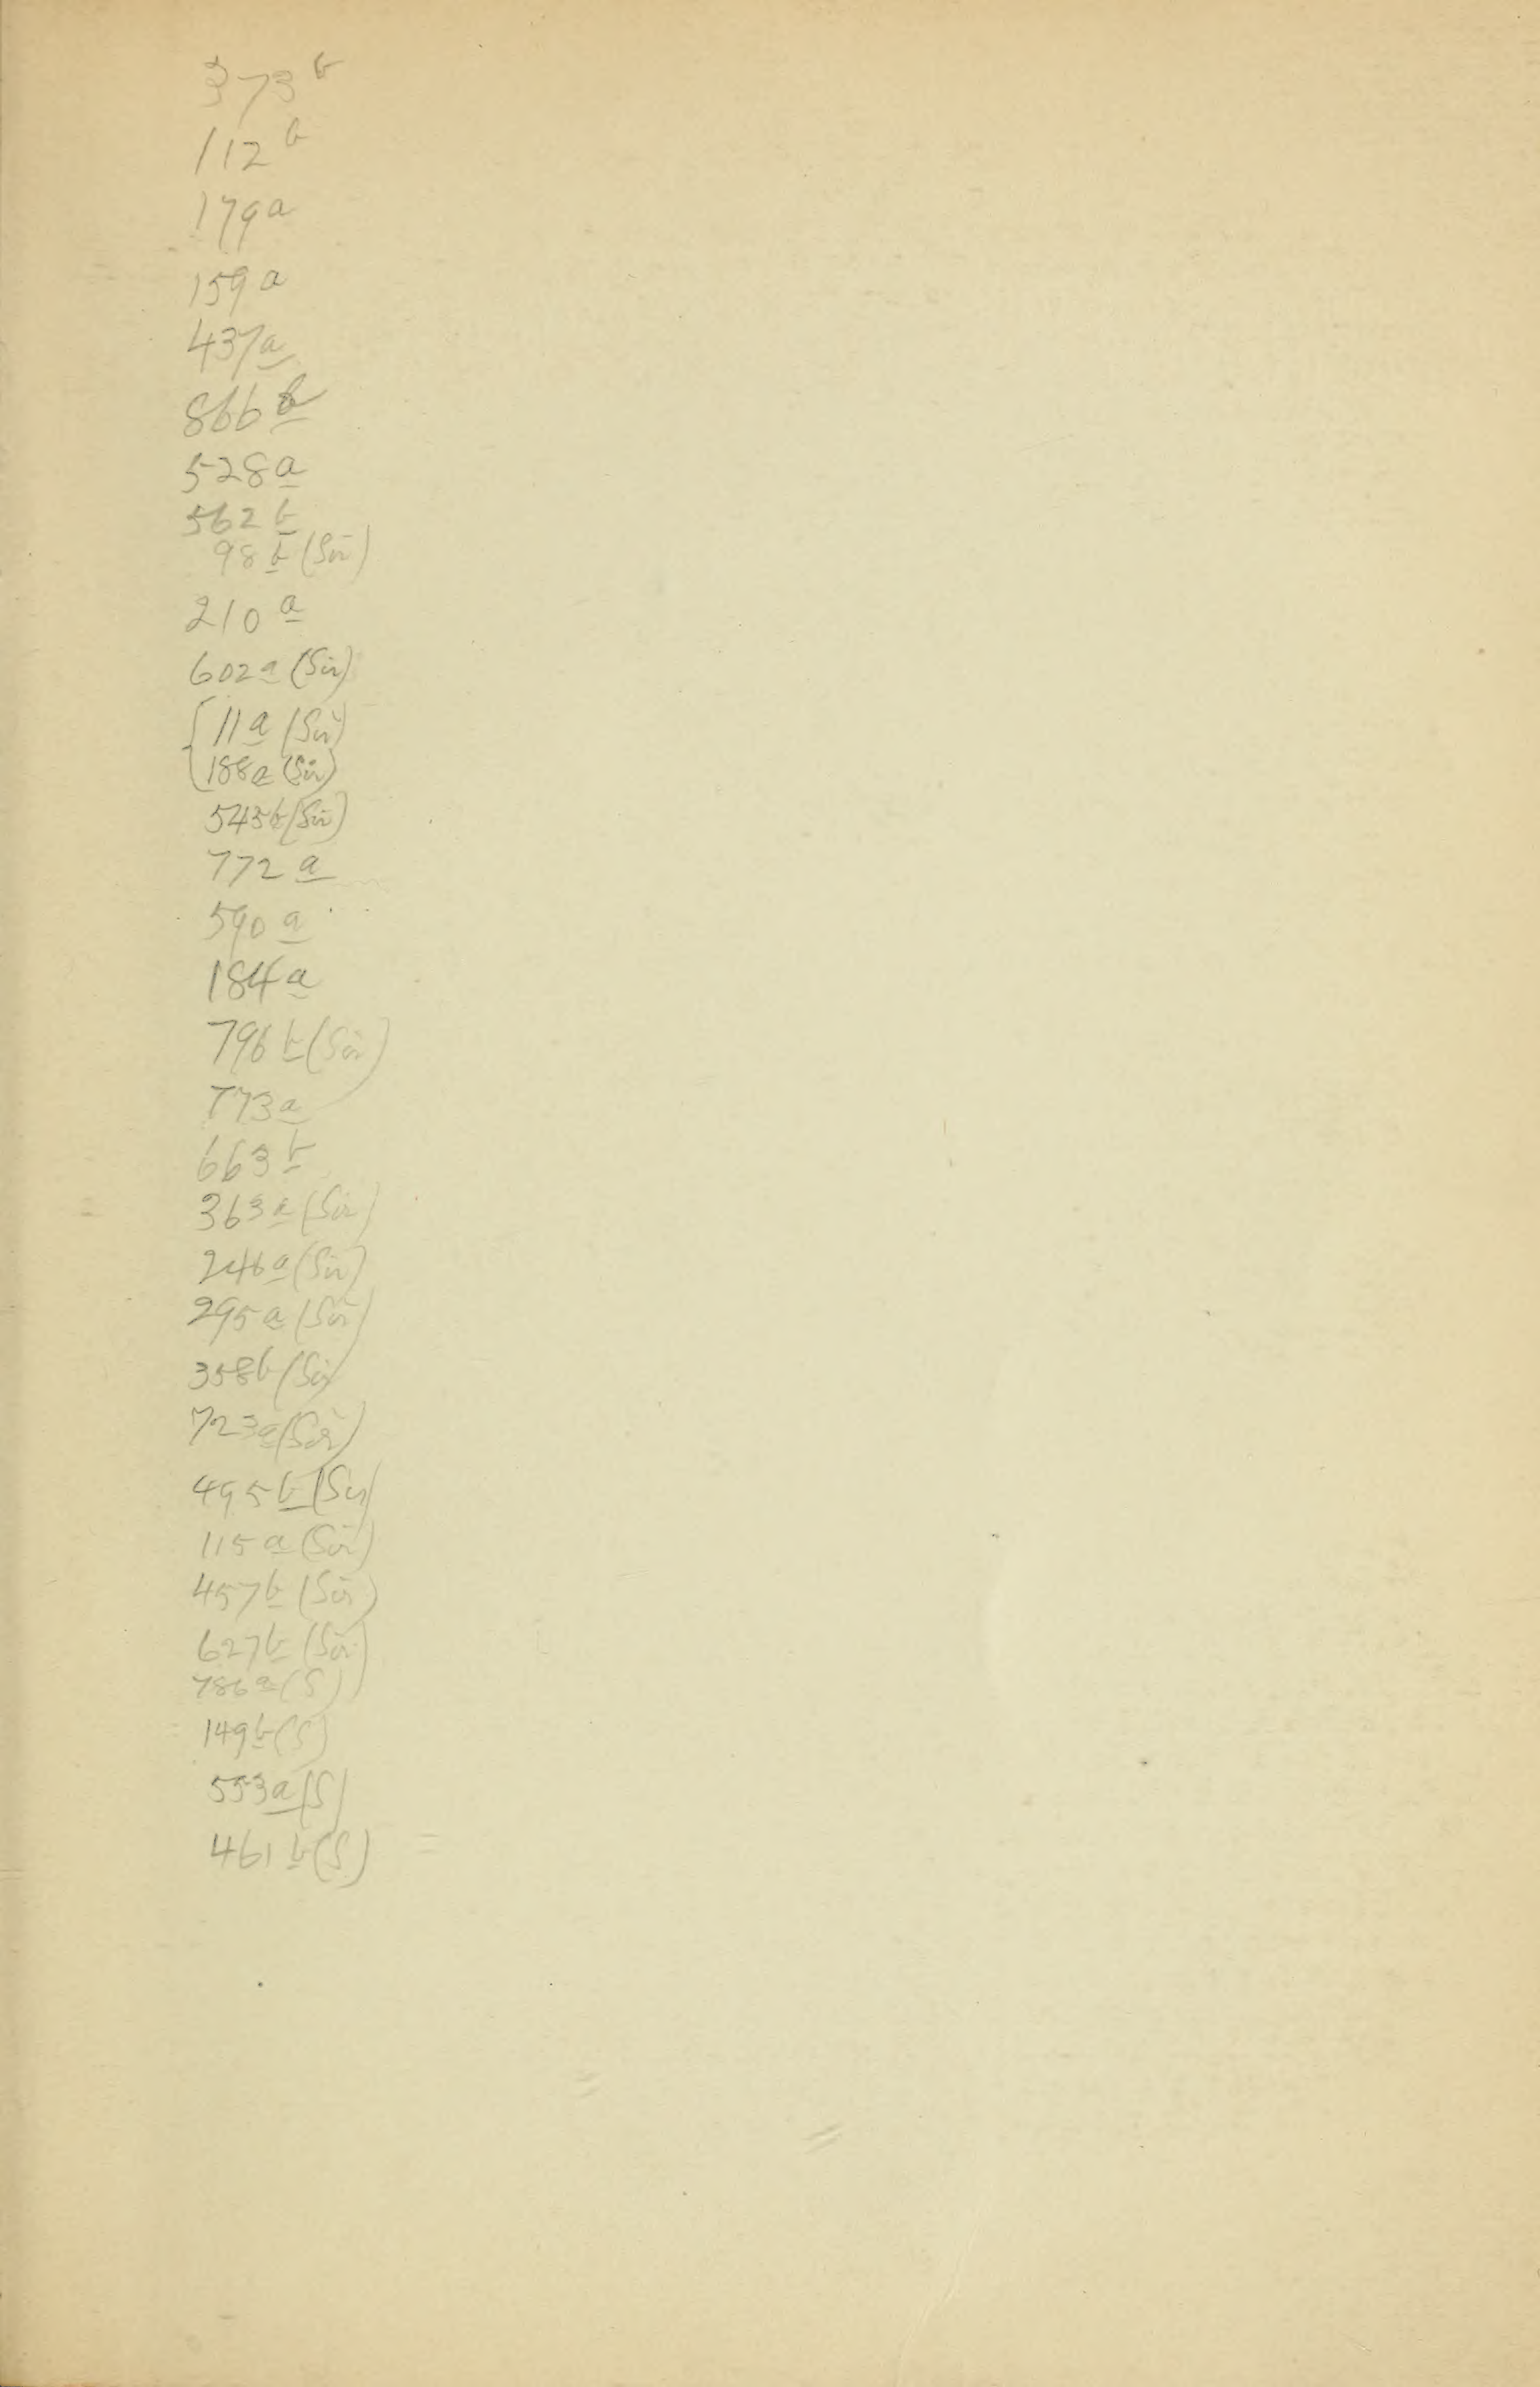 373 b
112 b
179 a
159 a
437 a
866 b
528 a
562 b
98 b (Sir)
210 a
602 a (Sir)
11 a (Sir)
188 a (Sir)
545 b (Sir)
772 a
590 a
184 a
796 b (Sir)
773 a
663 b
363 a (Sir)
246 a (Sir)
295 a (Sir)
358 b (Sir)
723 a (Sir)
495 b (Sir)
115 a (Sir)
457 b (Sir)
627 b (Sir)
786 a (S)
149 b (S)
553 a (S)
461 b (S)